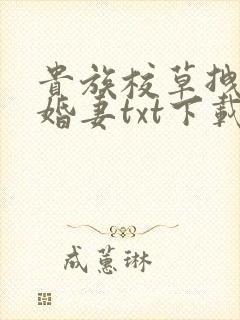 貴族校草拽
婚妻txt下載
成蕙琳